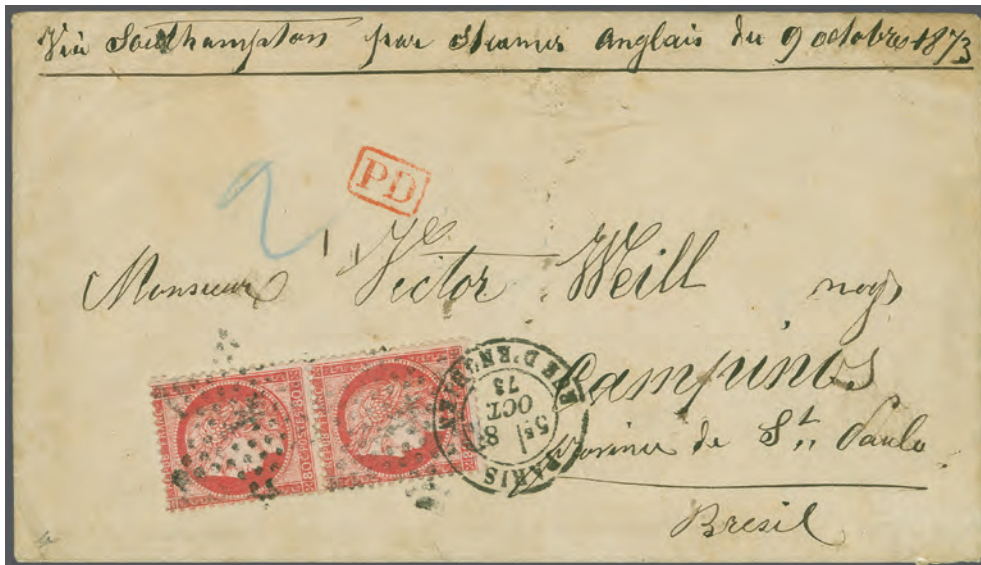 Via Southampton par Steamer Anglais du 9 octobre 1873
2
PD
Monsieur Victor Weill
nego
Campinos
Province de St. Paulo
Bresil
PARIS
R. D'ENGHIEN
5E
8
OCT.
73
80 POSTES 80
80